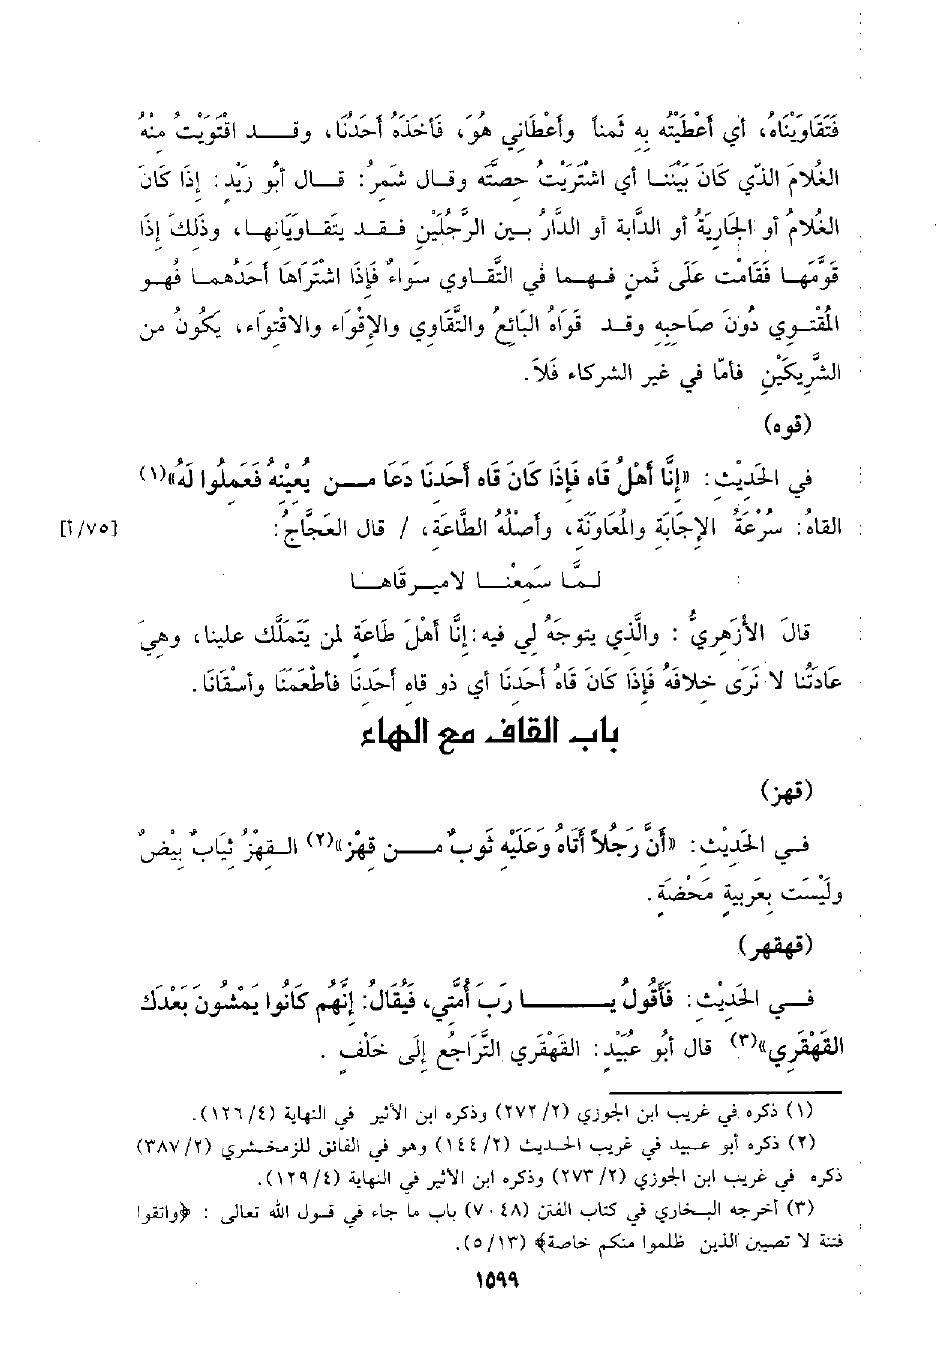 فَتَقَاوَيْنَاهُ، أي أَعْطَيْتُه بِهِ ثَمناً وأَعْطَاني هُوَ، فَأَخَذَهُ أَحَدُنَا، وقـــد اقْتَوَيْتُ مِنْهُ
الغُلامَ الذّي كَانَ بَيْنَنـا أي اشْتَرَيْتُ حِصتَّه وقـال شَمرُ: قـــال أَبُو زَيْدٍ: إذَا كَانَ
الغُلامُ أو الجَارِيَةُ أو الدَّابة أو الدَّارُ بـين الرَّجُلَيْنِ فـقـد يتَقـاوَيَانِهـا، وذَلِكَ إذَا
قَوَّمَهـا فَقَامَت عَلَى ثَمنٍ فـهـما في التَّقـاوي سَواءٌ فَإذَا اشْتَرَاهَا أحَدُهمـا فُهـو
المُقْتـوي دُونَ صَاحبِهِ وقـد قَوَاهُ البَائِعُ والتَّقَاوي والإقْوَاء والاقْتِواء، يَكُونُ من
الشَّرِيكَيْنِ فأمّا في غير الشركاء فَلاَ.
(قوه)
في الحَديْثِ: «إنَّا أَهْلُ قَاه فَإذَا كَانَ قَاه أَحَدَنَا دَعَا مـــن يُعِينُهُ فَعَمِلُوا لَهُ»(١)
القَاهُ: سُرْعَةُ الإجَابَةِ والمُعَاوَنَةِ، وأَصْلُهُ الطَّاعَة، / قال العَجَّاجُ: [٧٥/أ]
لـمَّا سَمِعْنـا لامـيرٍ قَاهـا
قالَ الأَزْهَرِيُّ : والَّذي يتوجَهُ لي فيه: إنَّا أَهْلَ طَاعَةِ لمن يَتَمَلَّك علينا، وهيَ
عَادَتُنا لا نَرَى خِلافَهُ فَإذَا كَانَ قَاهُ أحَدَنَا أي ذو قاهِ أحَدَنَا فأطْعَمنَا وأسْقَانَا.
باب القاف مع الهاء
(قهز)
فـي الحَديْثِ: «أَنَّ رَجُلاً أَتَاهُ وَعَلَيْهِ ثَوبٌ مـــن قِهْز»(٢) الـقِهْزُ ثِيَابٌ بِيْضٌ
ولَيْسَت بِعَربيةٍ مَحْضَةٍ.
(قهقهر)
فـي الحَديْثِ: فَأَقُولُ يـــــا رَبَ أُمَّتي، فَيُقَالُ: إنَّهُم كَانُوا يَمْشُونَ بَعْدَكَ
القَهْقَرِي»(٣) قال أبُو عُبَيْدٍ: القَهْقَري التَّرَاجُعِ إلَى خَلْفٍ .
(١) ذكره في غريب ابن الجوزي (٢/ ٢٧٢) وذكره ابن الأثير في النهاية (٤/ ١٢٦).
(٢) ذكره أبو عـبيد في غريب الحـديث (٢/ ١٤٤) وهو في الفائق للزمخـشري (٢/ ٣٨٧)
ذكره في غريب ابن الجوزي (٢/ ٢٧٣) وذكره ابن الأثير في النهاية (٤/ ١٢٩).
(٣) أخرجه البـخاري في كتاب الفتن (٧٠٤٨) باب ما جاء في قـول الله تعالى : ﴿واتقوا
فتنة لا تصيبن الذين ظلموا منكم خاصة﴾ (١٣/ ٥).
١٥٩٩